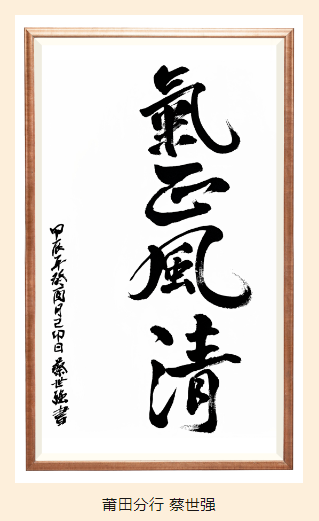 氣正風清
甲辰年癸酉月己卯日蔡世强書
莆田分行 蔡世强